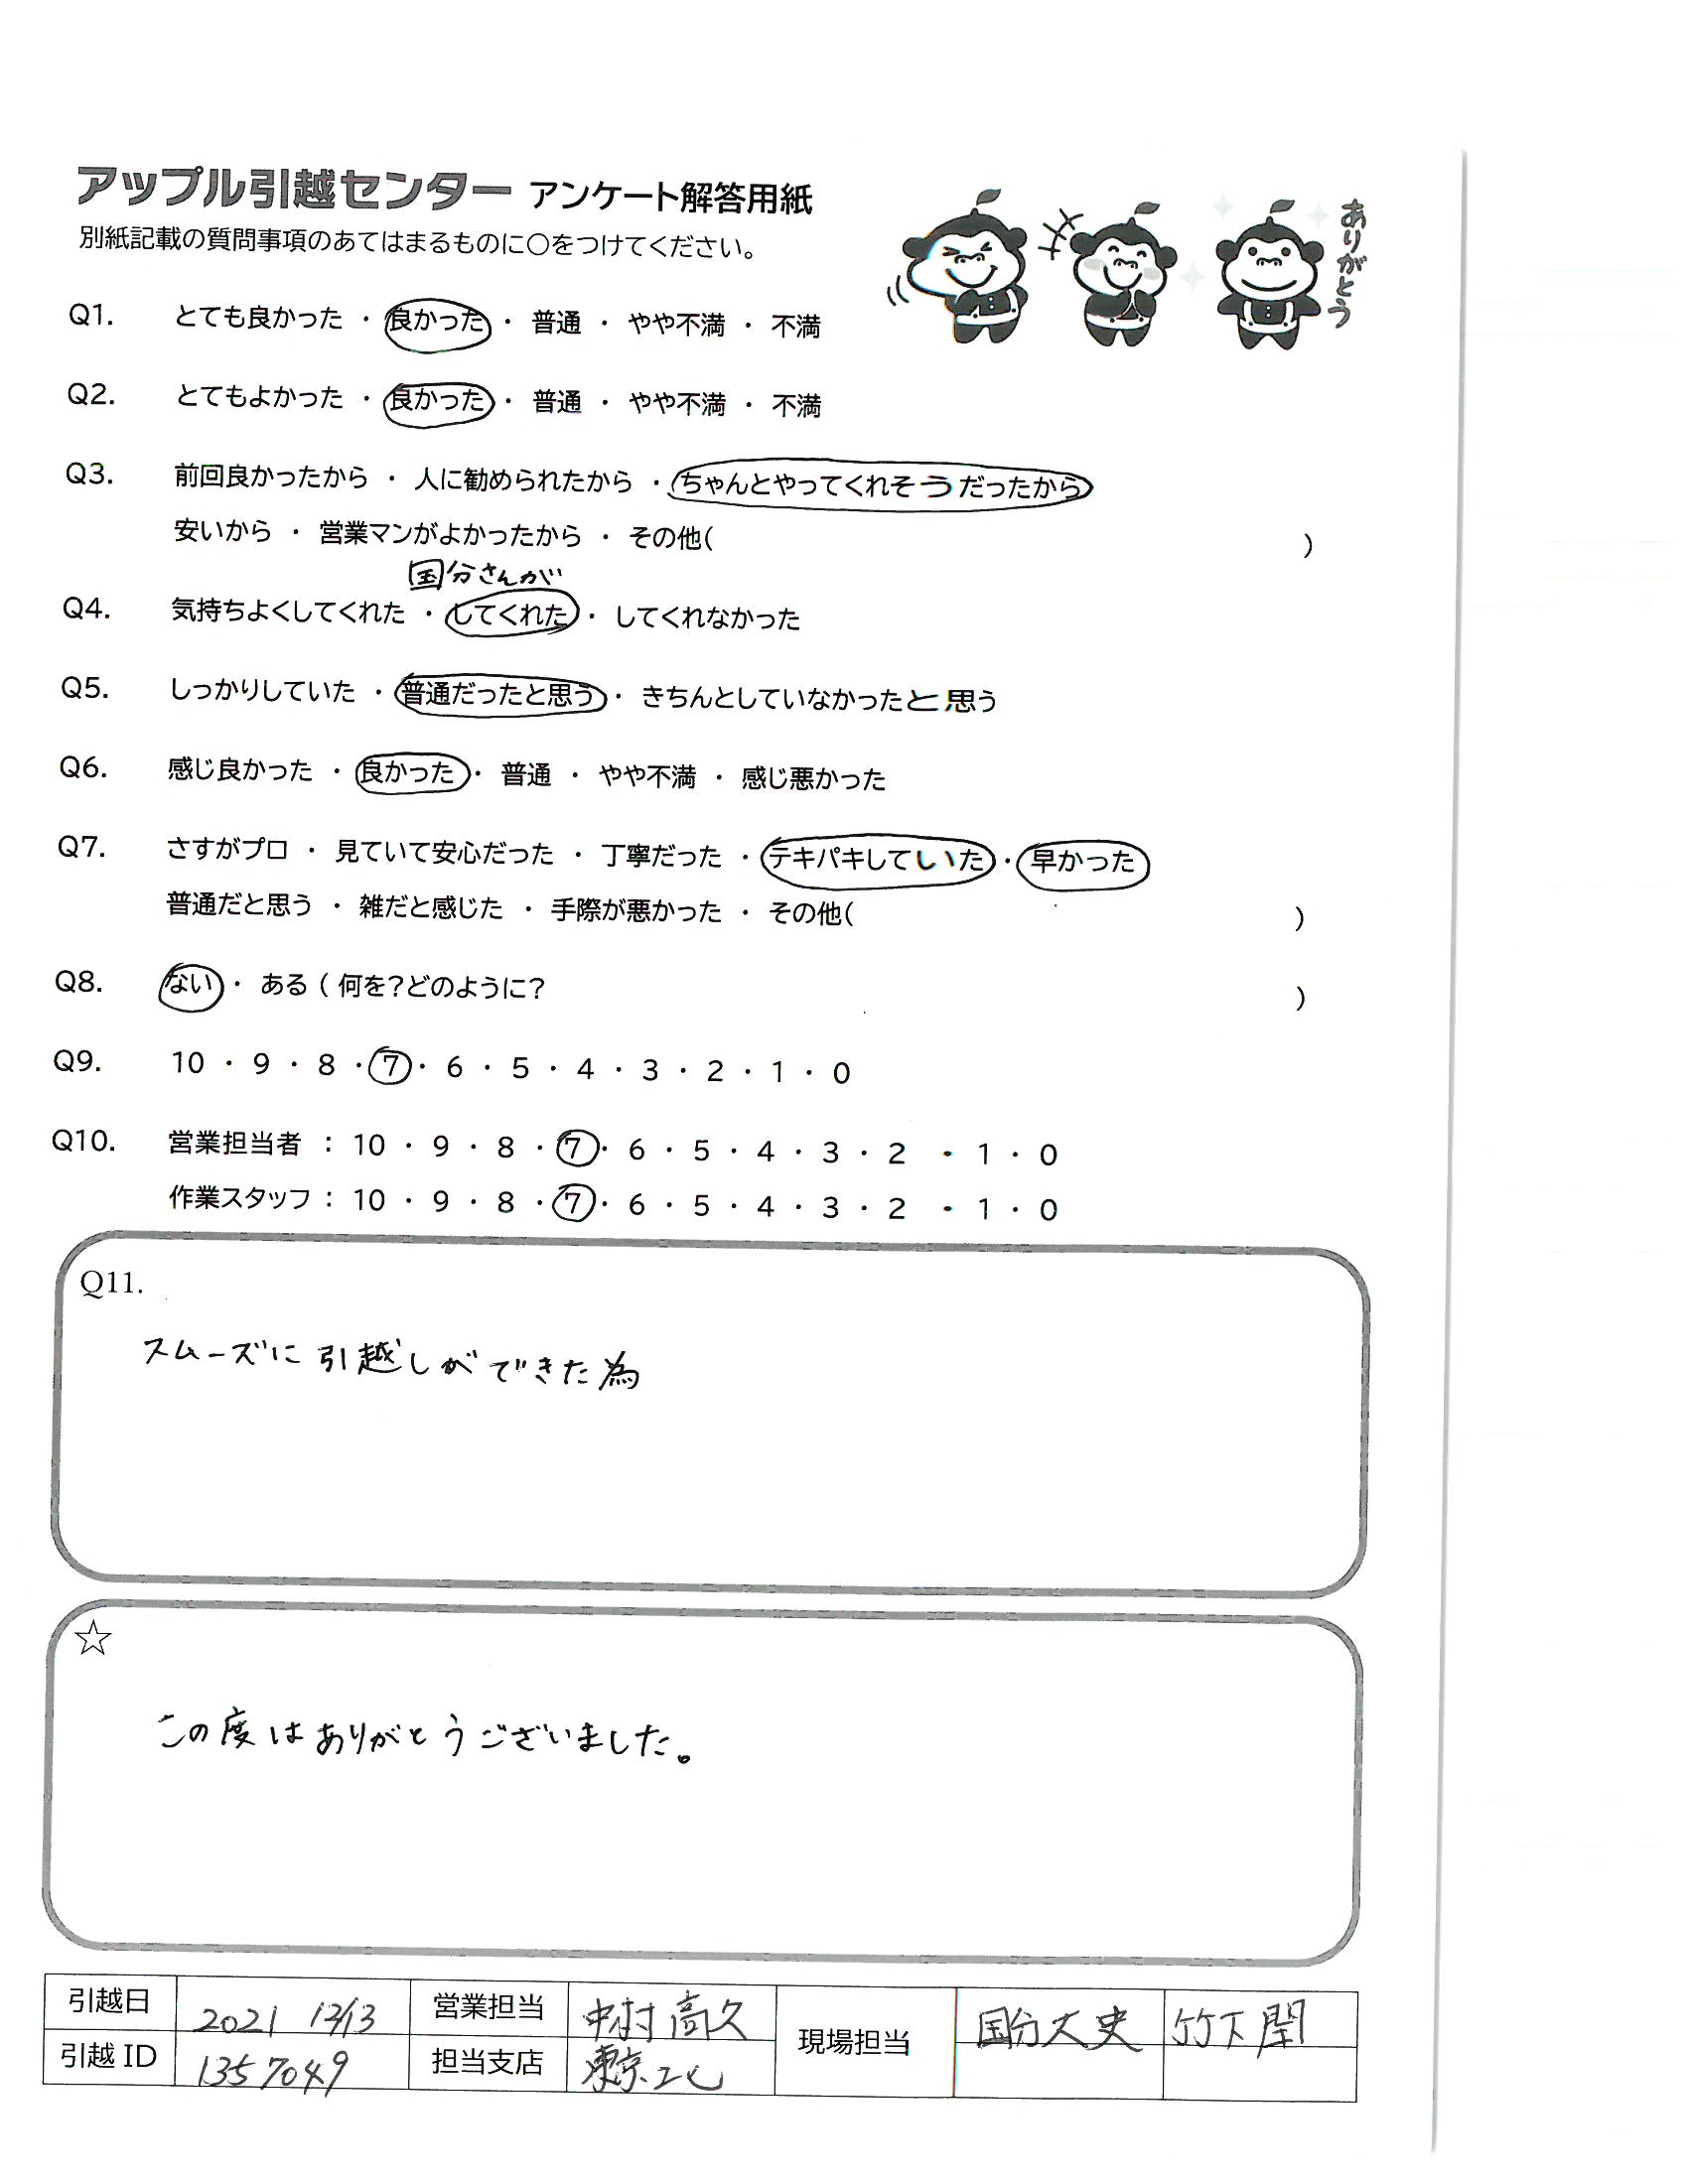 アップル引越センター アンケート解答用紙
別紙記載の質問事項のあてはまるものに○をつけてください。
ありがとう
Q1. とても良かった ・ 良かった ・ 普通 ・ やや不満 ・ 不満
Q2. とてもよかった ・ 良かった ・ 普通 ・ やや不満 ・ 不満
Q3. 前回良かったから ・ 人に勧められたから ・ ちゃんとやってくれそうだったから
安いから ・ 営業マンがよかったから ・ その他( )
国分さんが
Q4. 気持ちよくしてくれた ・ してくれた ・ してくれなかった
Q5. しっかりしていた ・ 普通だったと思う ・ きちんとしていなかったと思う
Q6. 感じ良かった ・ 良かった ・ 普通 ・ やや不満 ・ 感じ悪かった
Q7. さすがプロ ・ 見ていて安心だった ・ 丁寧だった ・ テキパキしていた ・ 早かった
普通だと思う ・ 雑だと感じた ・ 手際が悪かった ・ その他( )
Q8. ない ・ ある ( 何を?どのように? )
Q9. 10 ・ 9 ・ 8 ・ 7 ・ 6 ・ 5 ・ 4 ・ 3 ・ 2 ・ 1 ・ 0
Q10. 営業担当者 : 10 ・ 9 ・ 8 ・ 7 ・ 6 ・ 5 ・ 4 ・ 3 ・ 2 ・ 1 ・ 0
作業スタッフ : 10 ・ 9 ・ 8 ・ 7 ・ 6 ・ 5 ・ 4 ・ 3 ・ 2 ・ 1 ・ 0
Q11.
スムーズに引越しができた為
☆
この度はありがとうございました。
引越日 2021 12/13 営業担当 中村高久 現場担当 国分大史 竹下
引越ID 1357049 担当支店 東京